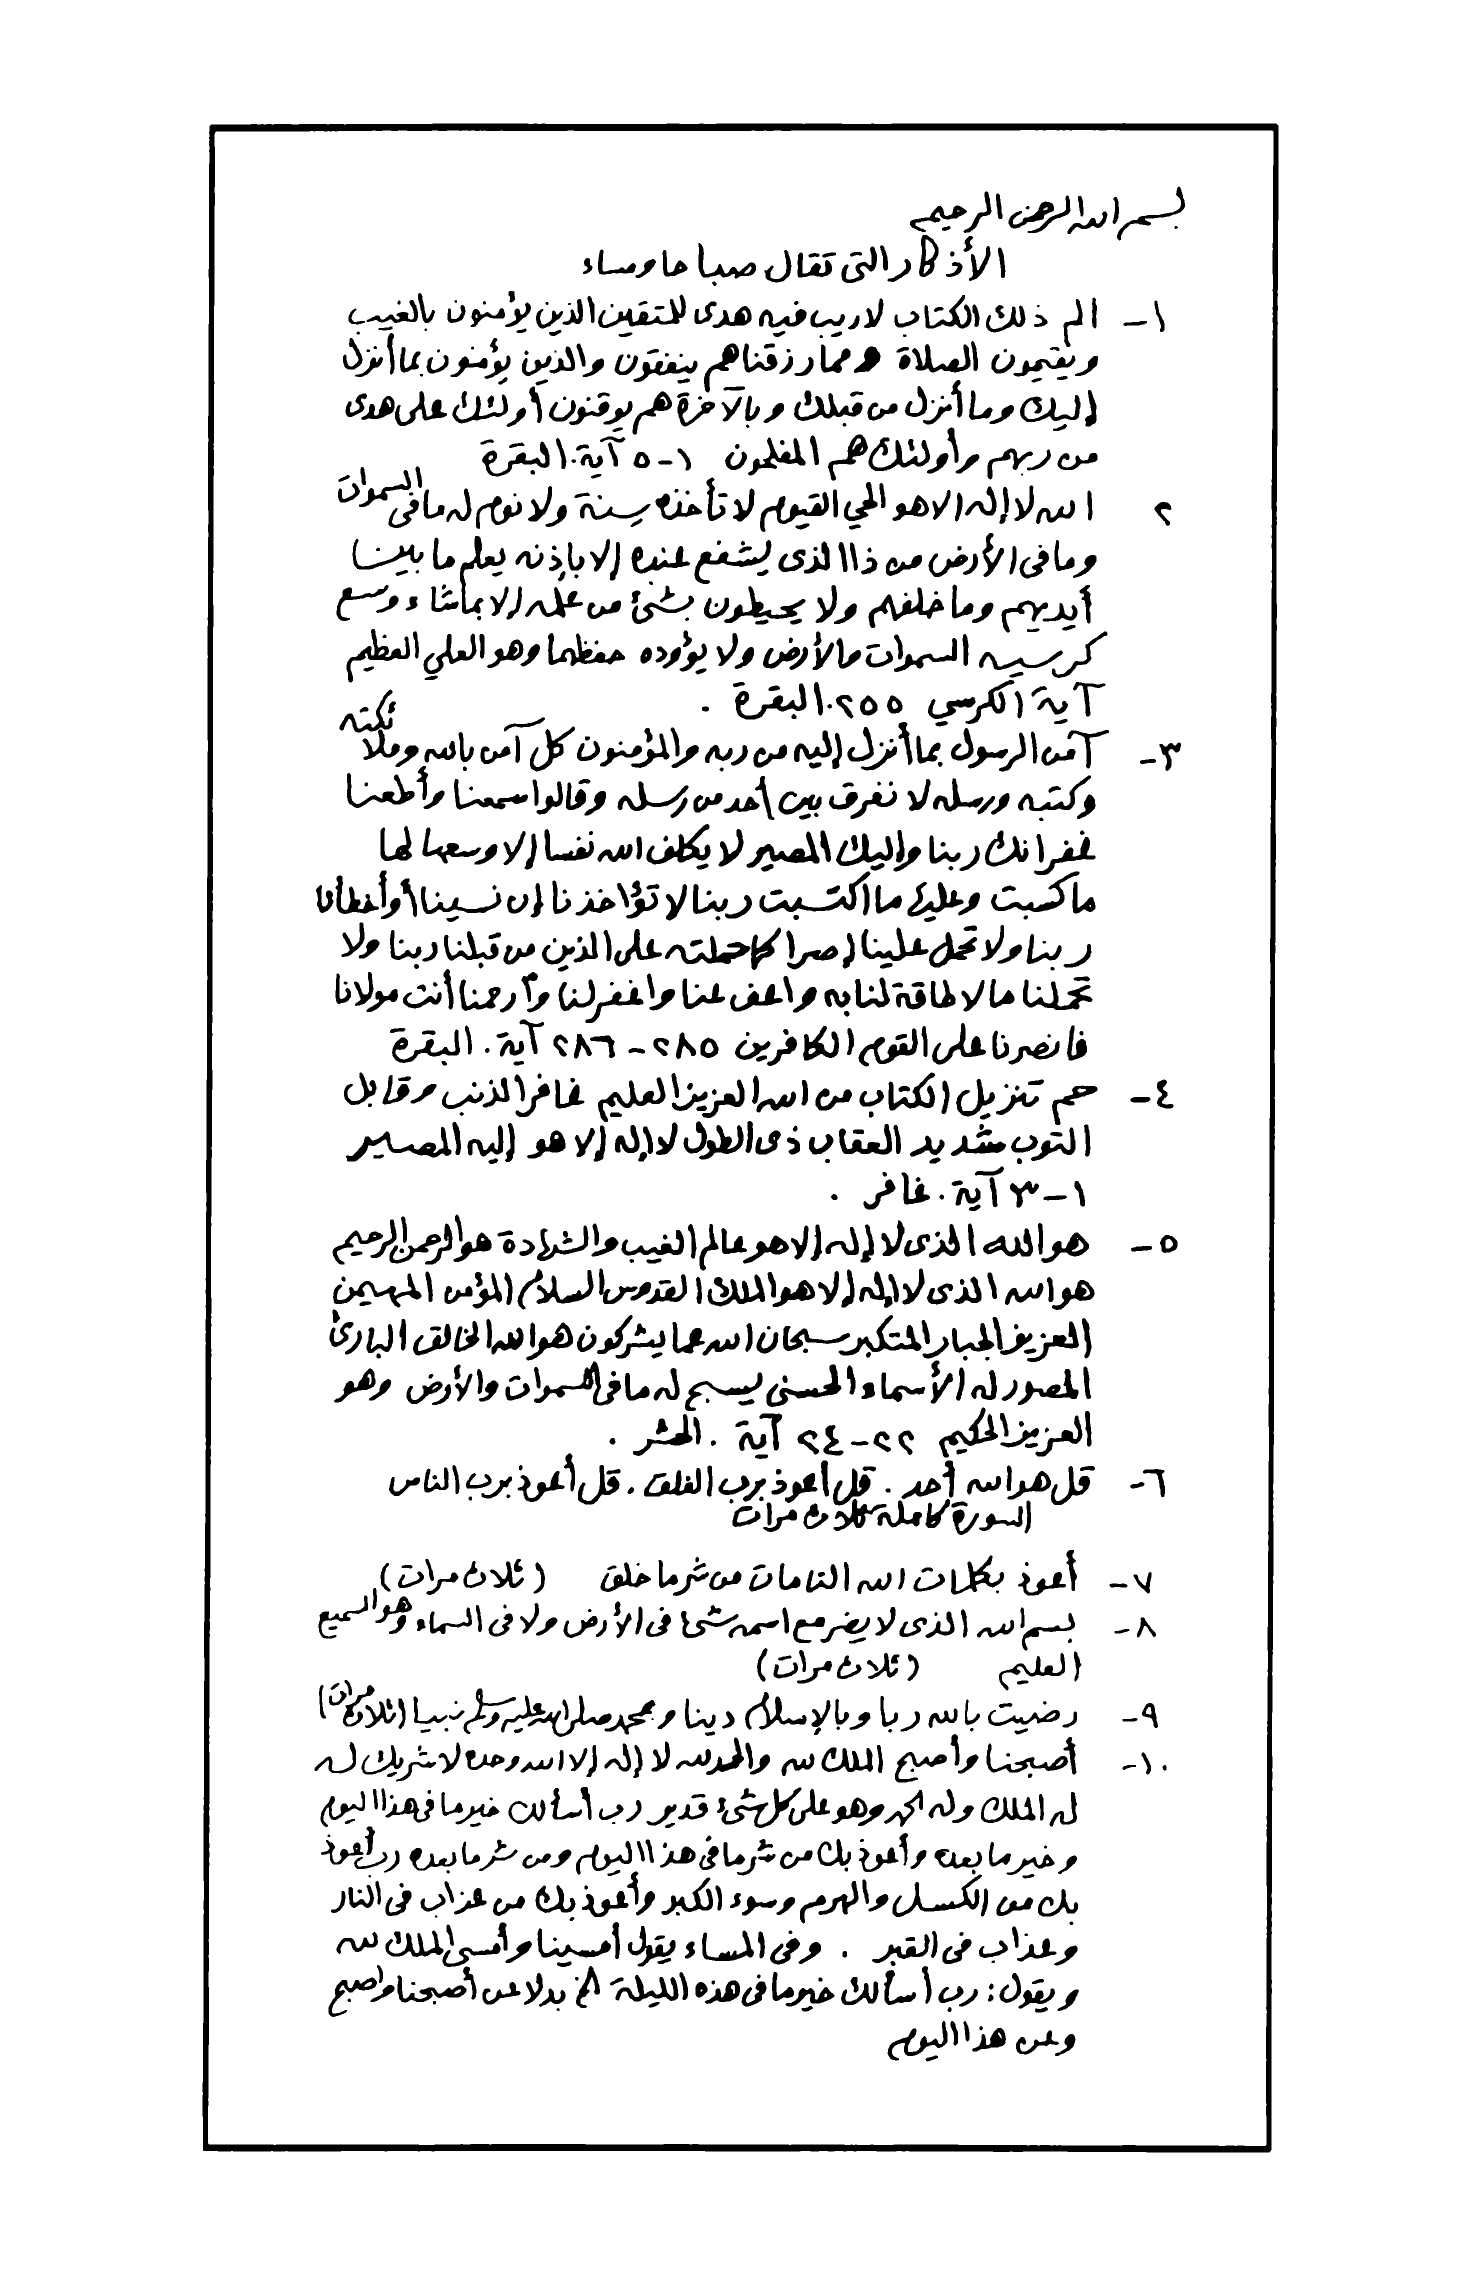 بسم الله الرحمن الرحيم
الأذكار التى تقال صباحا ومساء
١- الم ذلك الكتاب لا ريب فيه هدى للمتقين الذين يؤمنون بالغيب
ويقيمون الصلاة ومما رزقناهم ينفقون والذين يؤمنون بما أنزل
إليك وما أنزل من قبلك وبالآخرة هم يوقنون أولئك على هدى
من ربهم وأولئك هم المفلحون ١-٥ آية. البقرة
٢ الله لا إله إلا هو الحي القيوم لا تأخذه سنة ولا نوم له ما فى السموات
وما فى الأرض من ذا الذى يشفع عنده إلا بإذنه يعلم ما بين
أيديهم وما خلفهم ولا يحيطون بشئ من علمه إلا بما شاء وسع
كرسيه السموات والأرض ولا يؤوده حفظهما وهو العلي العظيم
آية الكرسي ٢٥٥. البقرة .
٣- آمن الرسول بما أنزل إليه من ربه والمؤمنون كل آمن بالله وملائكته
وكتبه ورسله لا نفرق بين أحد من رسله وقالوا سمعنا وأطعنا
غفرانك ربنا وإليك المصير لا يكلف الله نفسا إلا وسعها لها
ما كسبت وعليها ما اكتسبت ربنا لا تؤاخذنا إن نسينا أو أخطأنا
ربنا ولا تحمل علينا إصرا كما حملته على الذين من قبلنا ربنا ولا
تحملنا ما لا طاقة لنا به واعف عنا واغفر لنا وارحمنا أنت مولانا
فانصرنا على القوم الكافرين ٢٨٥-٢٨٦ آية. البقرة
٤- حم تنزيل الكتاب من الله العزيز العليم غافر الذنب وقابل
التوب شديد العقاب ذى الطول لا إله إلا هو إليه المصير
١-٣ آية. غافر .
٥- هو الله الذى لا إله إلا هو عالم الغيب والشهادة هو الرحمن الرحيم
هو الله الذى لا إله إلا هو الملك القدوس السلام المؤمن المهيمن
العزيز الجبار المتكبر سبحان الله عما يشركون هو الله الخالق البارئ
المصور له الأسماء الحسنى يسبح له ما فى السموات والأرض وهو
العزيز الحكيم ٢٢-٢٤ آية . الحشر .
٦- قل هو الله أحد . قل أعوذ برب الفلق . قل أعوذ برب الناس
السورة كاملة ثلاث مرات
٧- أعوذ بكلمات الله التامات من شر ما خلق (ثلاث مرات)
٨- بسم الله الذى لا يضر مع اسمه شئ فى الأرض ولا فى السماء وهو السميع
العليم (ثلاث مرات)
٩- رضيت بالله ربا وبالإسلام دينا وبمحمد صلى الله عليه وسلم نبيا (ثلاث مرات)
١٠- أصبحنا وأصبح الملك لله والحمد لله لا إله إلا الله وحده لا شريك له
له الملك وله الحمد وهو على كل شئ قدير رب أسألك خير ما فى هذا اليوم
وخير ما بعده وأعوذ بك من شر ما فى هذا اليوم ومن شر ما بعده رب أعوذ
بك من الكسل والهرم وسوء الكبر وأعوذ بك من عذاب فى النار
وعذاب فى القبر . وفى المساء يقول أمسينا وأمسى الملك لله
ويقول: رب أسألك خير ما فى هذه الليلة الخ بدلا عن أصبحنا وأصبح
وعن هذا اليوم